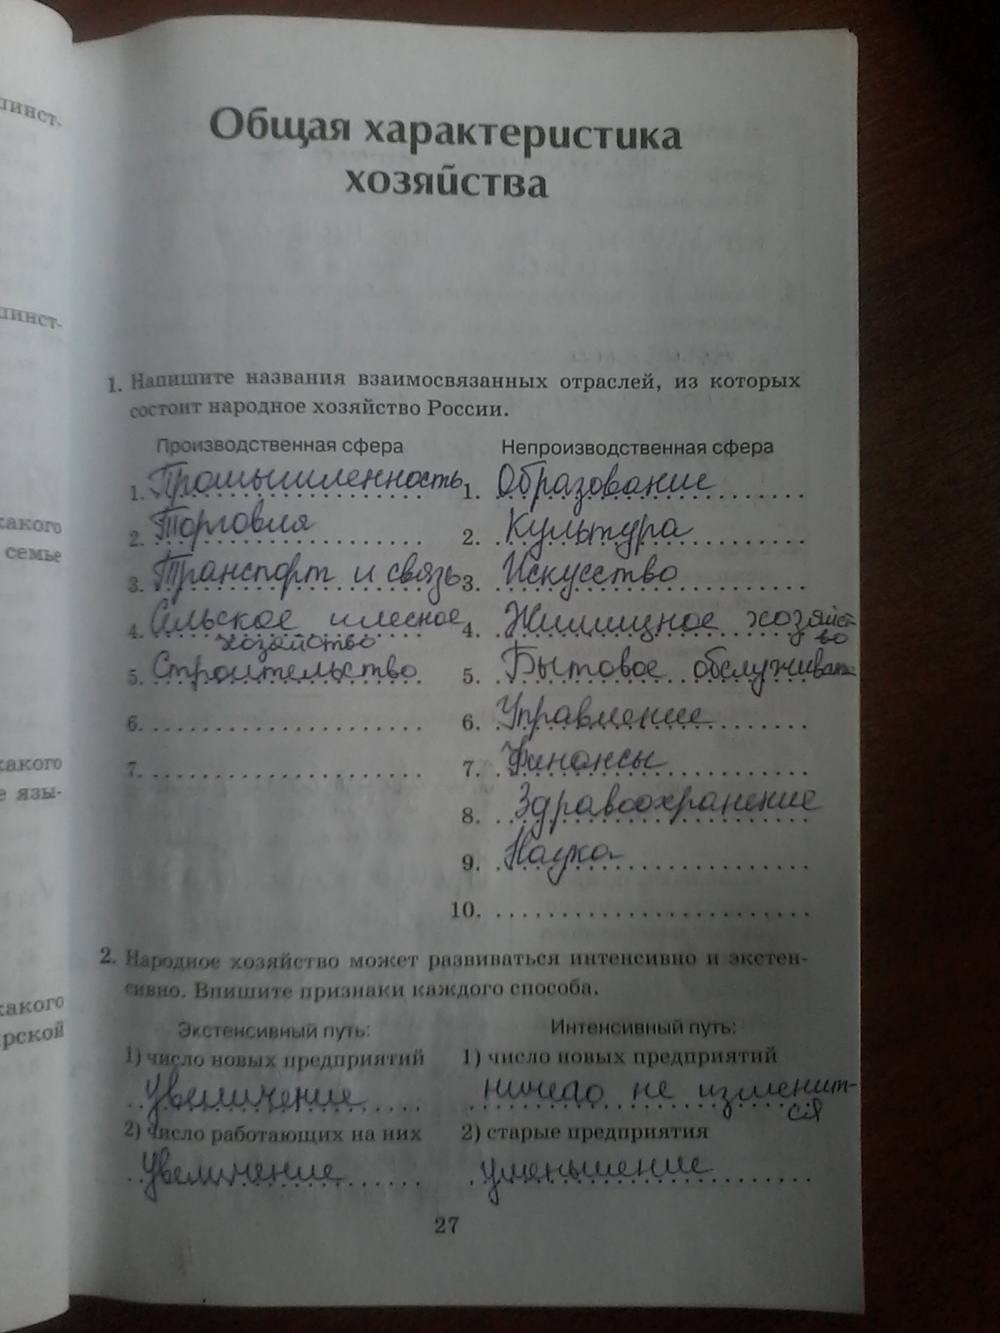 линст-
линст-
какого
семье
какого
е язы-
какого
рской
Общая характеристика
хозяйства
1. Напишите названия взаимосвязанных отраслей, из которых
состоит народное хозяйство России.
Производственная сфера
1. Промышленность
2. Торговля
3. Транспорт и связь
4. Сельское и лесное
хозяйство
5. Строительство
6.
7.
Непроизводственная сфера
1. Образование
2. Культура
3. Искусство
4. Жилищное хозяйст-
во
5. Бытовое
6. Управление
7. Финансы
8. Здравоохранение
9. Наука
10.
2. Народное хозяйство может развиваться интенсивно и экстен-
сивно. Впишите признаки каждого способа.
Экстенсивный путь:
1) число новых предприятий
Увеличение
2) число работающих на них
Увеличение
Интенсивный путь:
1) число новых предприятий
ничего не изменит-
ся
2) старые предприятия
уменьшение
27